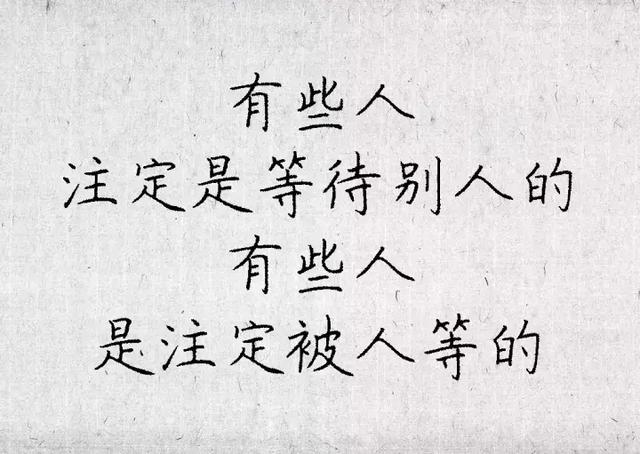 有些人
注定是等待别人的
有些人
是注定被人等的